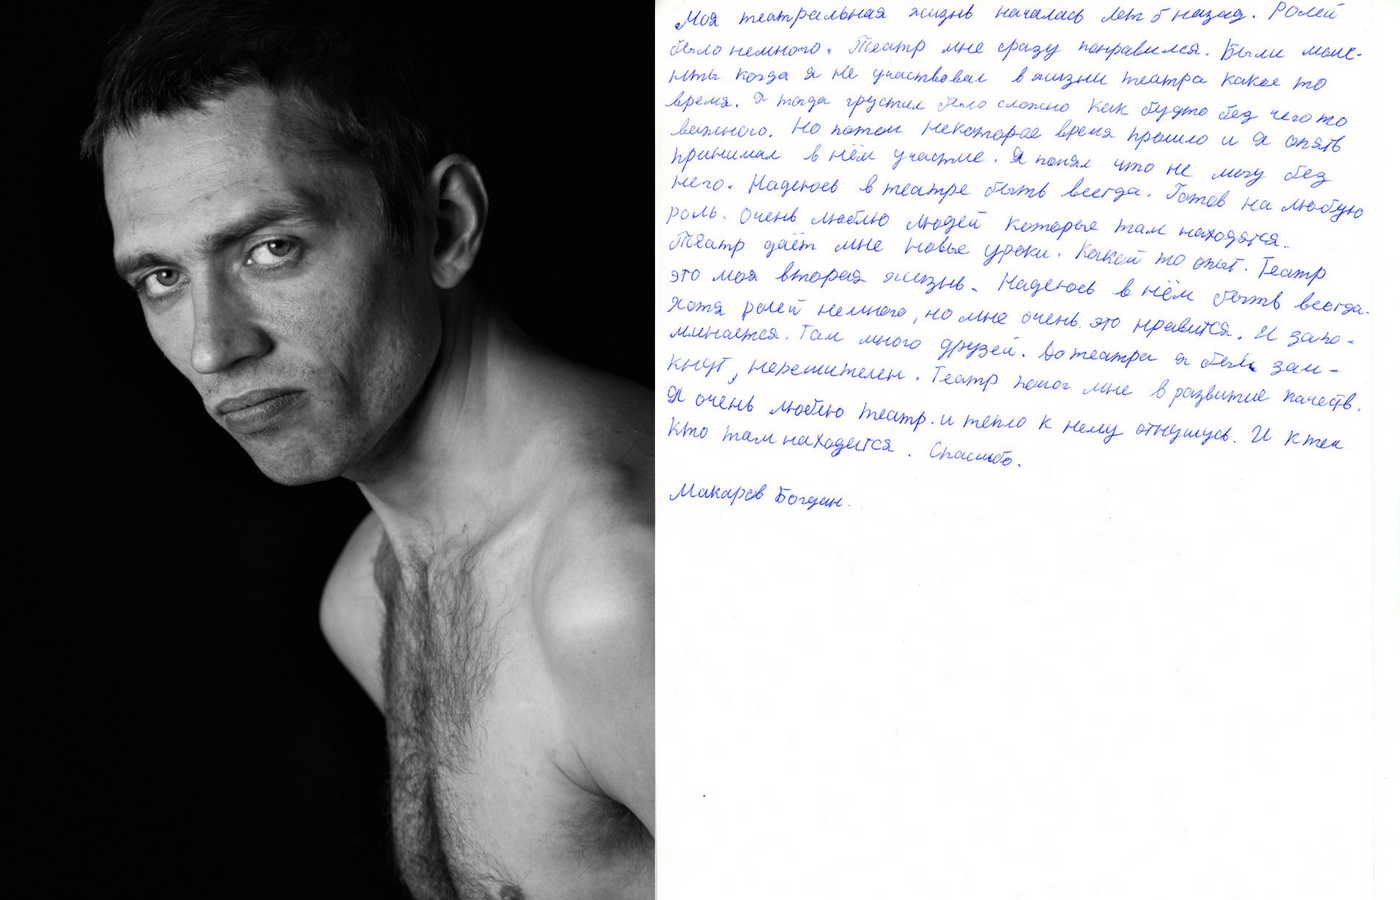 Моя театральная жизнь началась лет 5 назад. Ролей
было немного. Театр мне сразу понравился. Были моме-
нты когда я не участвовал в жизни театра какое то
время. Я тогда грустил было сложно как будто без чего то
важного. Но потом некоторое время прошло и я опять
принимал в нём участие. Я понял что не могу без
него. Надеюсь в театре быть всегда. Готов на любую
роль. Очень люблю людей которые там находятся.
Театр даёт мне новые уроки. Какой то опыт. Театр
это моя вторая жизнь. Надеюсь в нём быть всегда.
Хотя ролей немного, но мне очень это нравится. И запо-
минается. Там много друзей. До театра я был зам-
кнут, нерешителен. Театр помог мне в развитие качеств.
Я очень люблю театр. и тепло к нему отнушусь. И к тем
кто там находится. Спасибо.
Макаров Богдан.